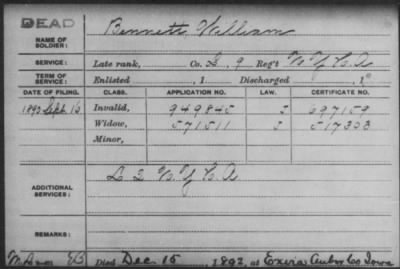 DEAD
NAME OF SOLDIER: Bennett, William
SERVICE: Late rank, Co. L, 9 Reg't N. Y. C. A
TERM OF SERVICE: Enlisted , 1 Discharged , 1
DATE OF FILING. CLASS. APPLICATION NO. LAW. CERTIFICATE NO.
Sept 16 Invalid, 949845 697159
Widow, 571511 517353
Minor,
ADDITIONAL SERVICES: L 2 N. Y. C. A
REMARKS:
Died Dec 15, 1892, at Exira Aubn Co Iowa